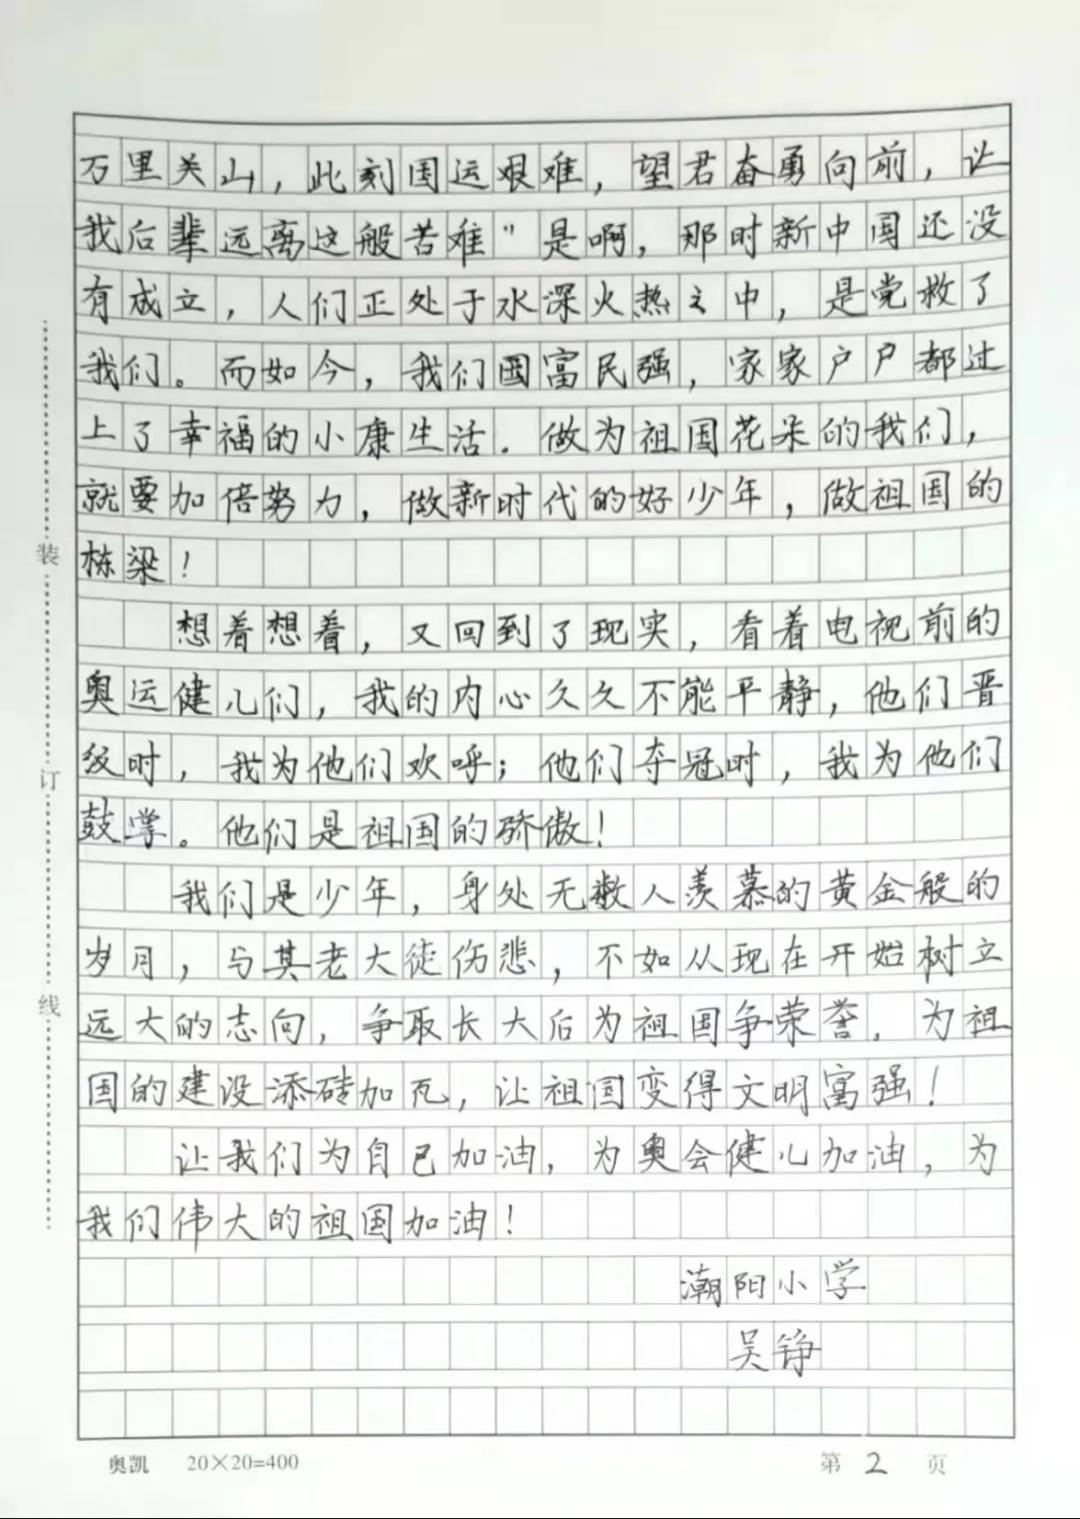 万里关山，此刻国运艰难，望君奋勇向前，让
我后辈远离这般苦难"是啊，那时新中国还没
有成立，人们正处于水深火热之中，是党救了
我们。而如今，我们国富民强，家家户户都过
上了幸福的小康生活．做为祖国花朵的我们，
就要加倍努力，做新时代的好少年，做祖国的
栋梁！
想着想着，又回到了现实，看着电视前的
奥运健儿们，我的内心久久不能平静，他们晋
级时，我为他们欢呼；他们夺冠时，我为他们
鼓掌。他们是祖国的骄傲！
我们是少年，身处无数人羡慕的黄金般的
岁月，与其老大徒伤悲，不如从现在开始树立
远大的志向，争取长大后为祖国争荣誉．为祖
国的建设添砖加瓦，让祖国变得文明富强！
让我们为自己加油，为奥会健儿加油，为
我们伟大的祖国加油！
潮阳小学
吴铮
装
订
线
奥凯 20×20=400 第 2 页